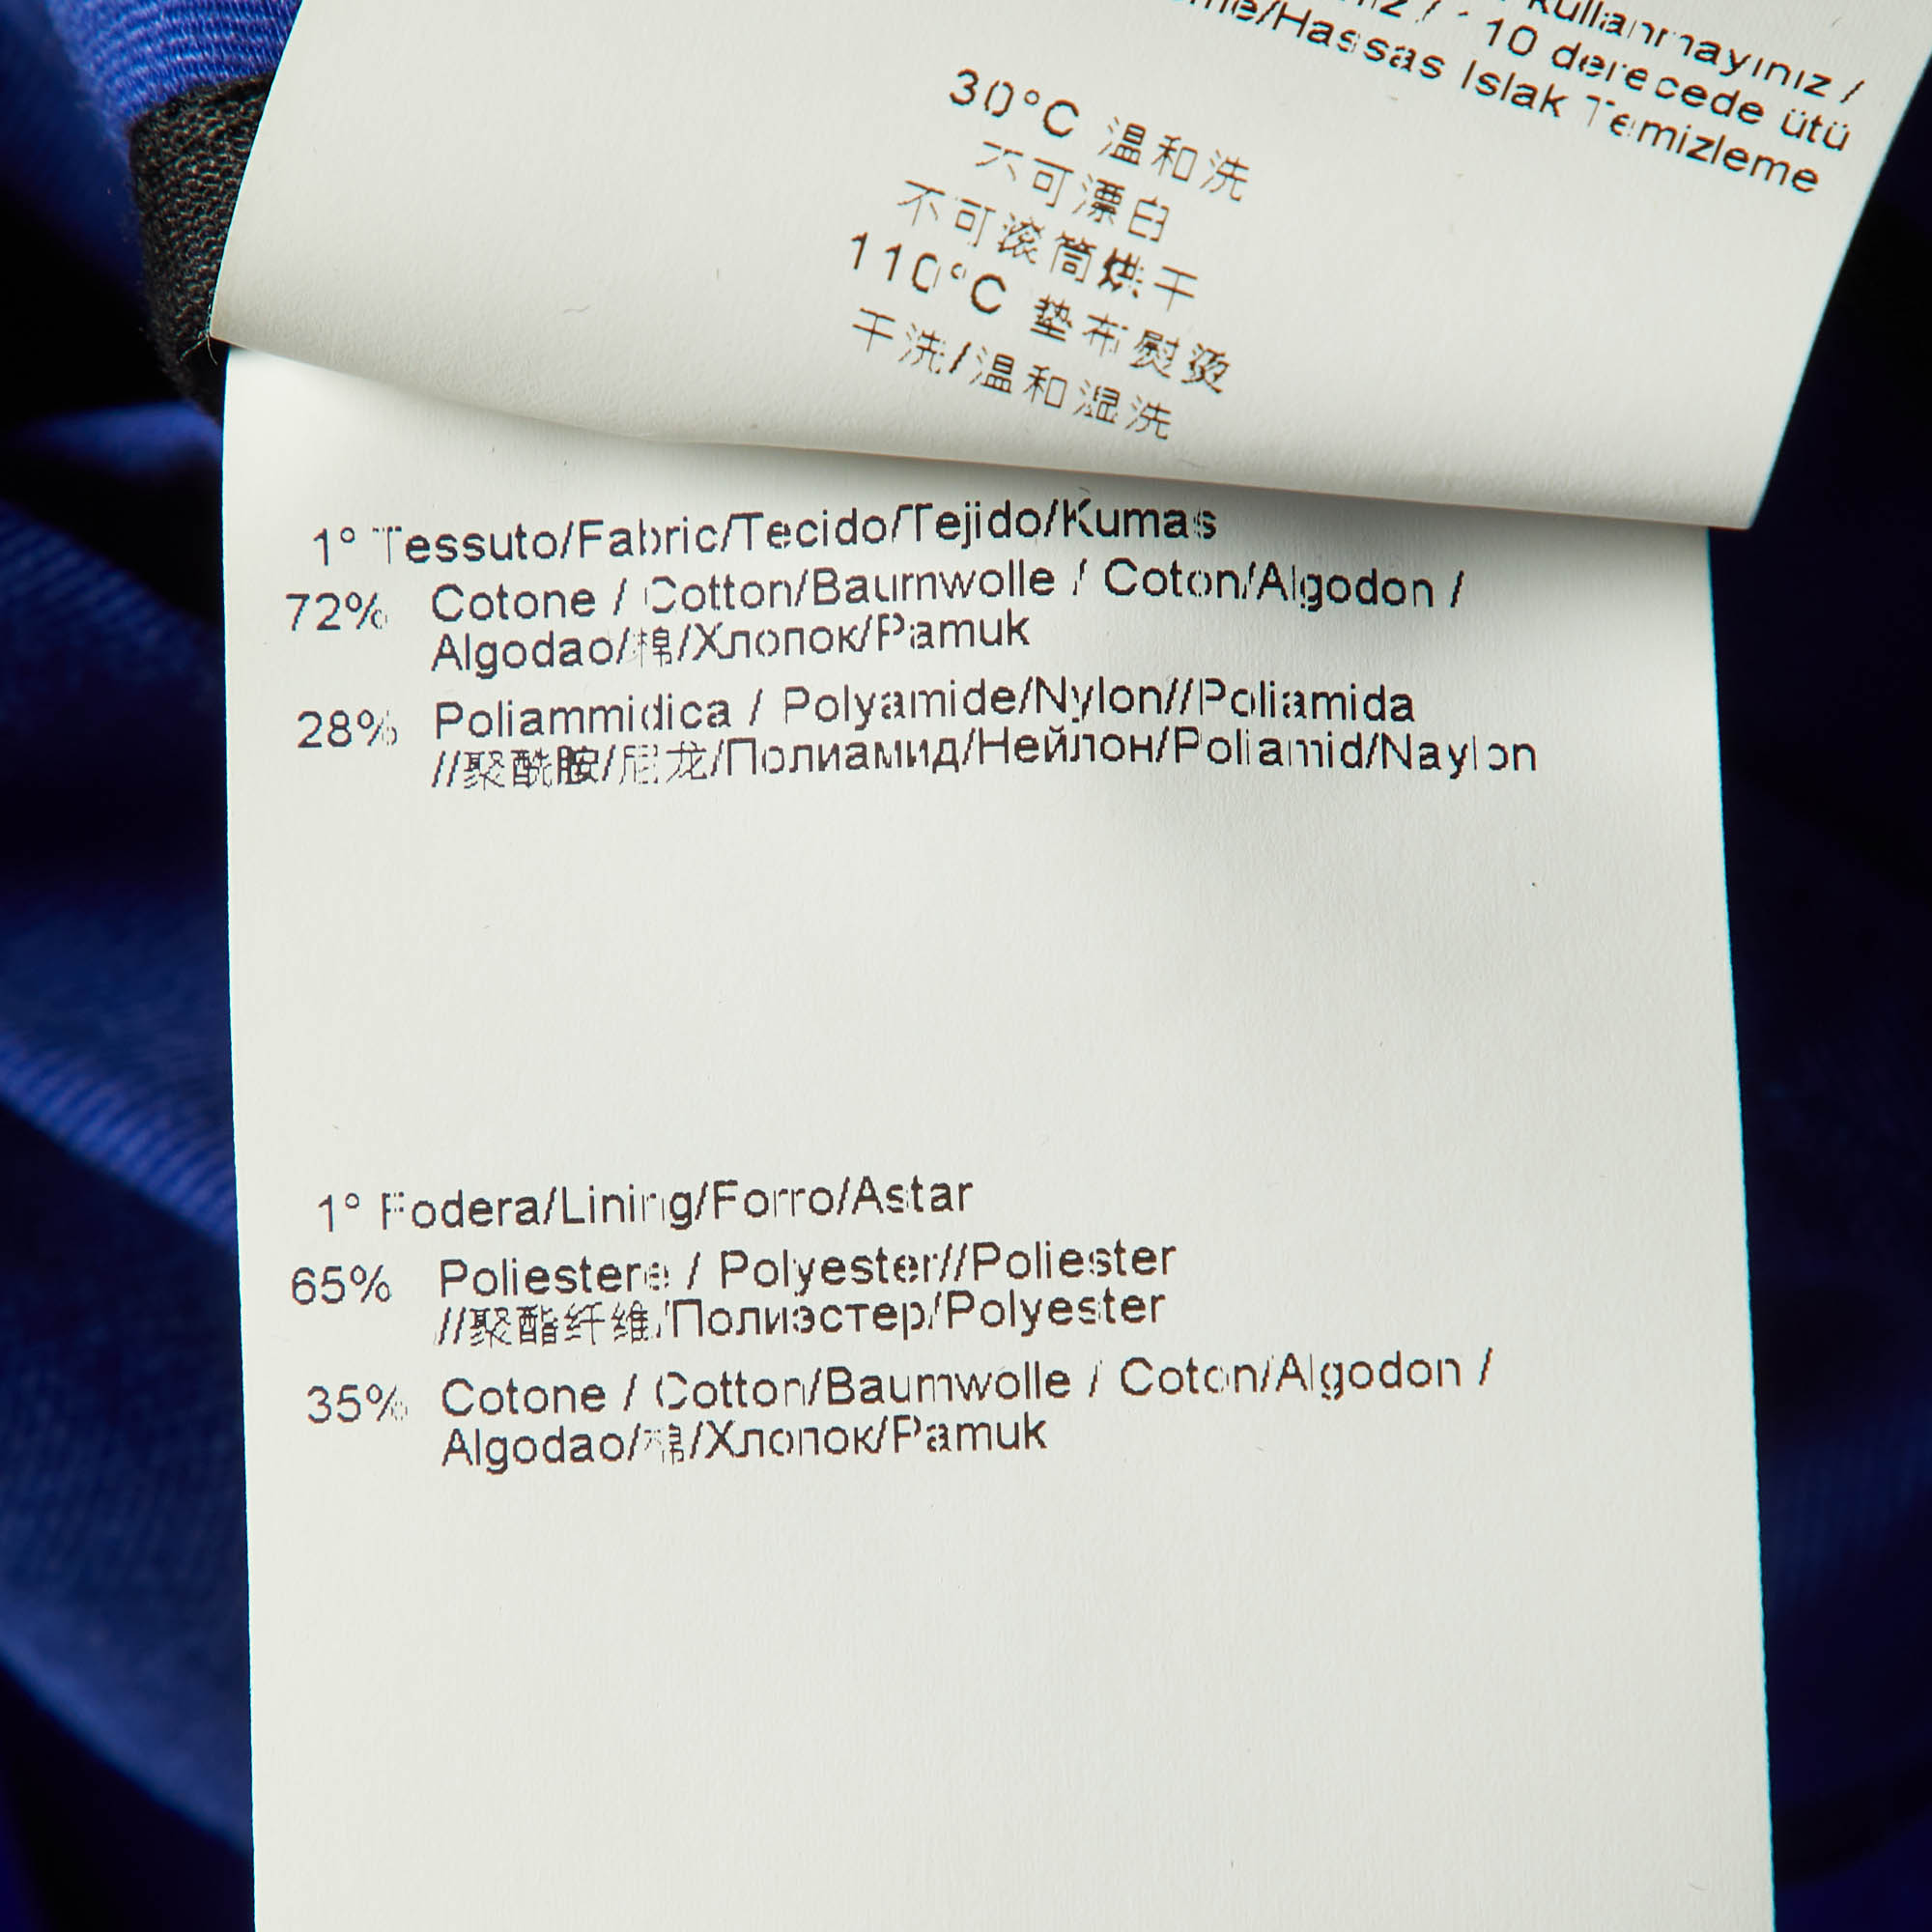 kullanmayınız /
10 derecede ütü
/Hassas Islak Temizleme
30°C 温和洗
不可漂白
不可滚筒烘干
110°C 垫布熨烫
干洗/温和湿洗
1° Tessuto/Fabric/Tecido/Tejido/Kumas
72% Cotone / Cotton/Baumwolle / Coton/Algodon /
Algodao/棉/Хлопок/Pamuk
28% Poliammidica / Polyamide/Nylon//Poliamida
//聚酰胺/尼龙/Полиамид/Нейлон/Poliamid/Naylon
1° Fodera/Lining/Forro/Astar
65% Poliestere / Polyester//Poliester
//聚酯纤维/Полиэстер/Polyester
35% Cotone / Cotton/Baumwolle / Coton/Algodon /
Algodao/棉/Хлопок/Pamuk